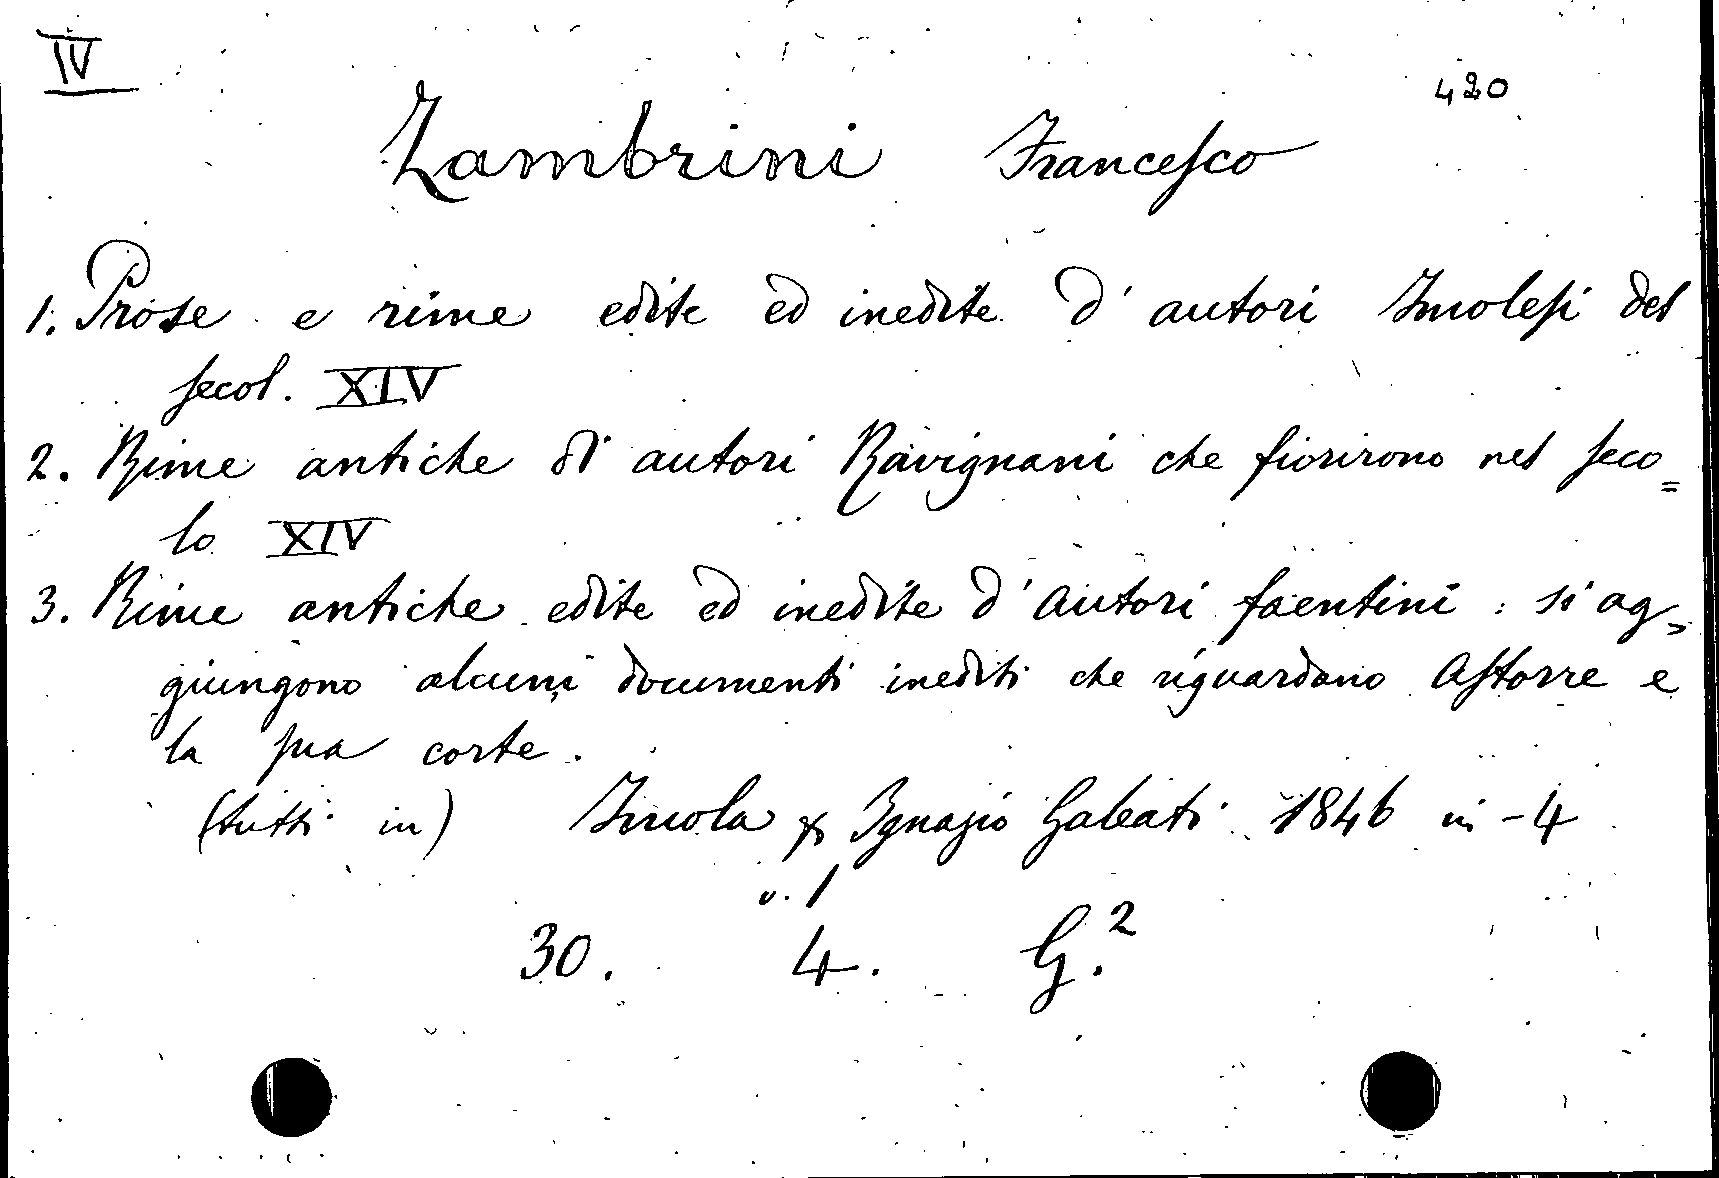 IV
420
Zambrini Francesco
1. Prose e rime edite ed inedite d'autori Imolesi del
secol. XIV
2. Rime antiche di autori Ravignani che fiorirono nel seco=
lo XIV
3. Rime antiche edite ed inedite d'autori faentini : si ag=
giungono alcuni documenti inediti che riguardano Astorre e
la sua corte.
(tutti in) Imola p Ignazio Galeati 1846 in-4
v. 1
30. 4. G.²